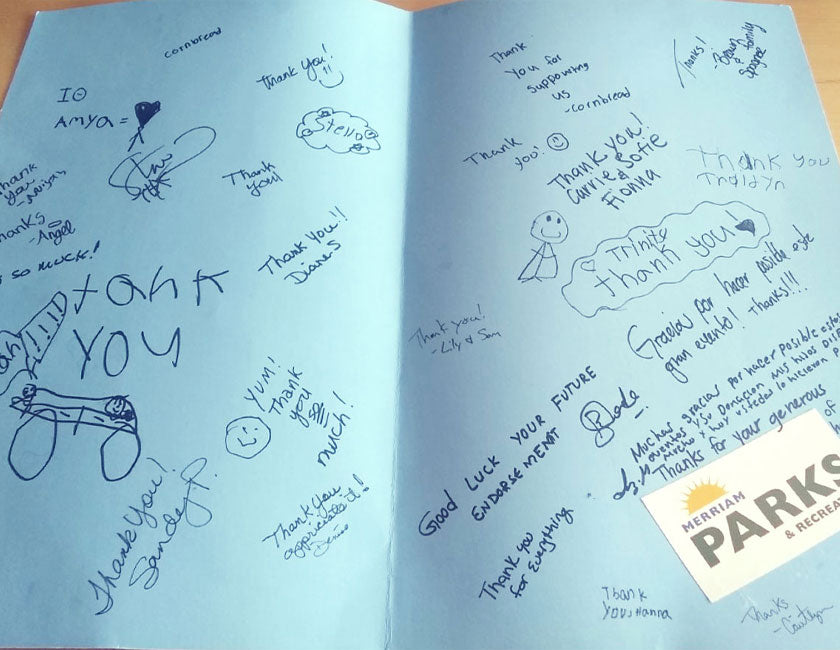 cornbread
Thank you!
IO
Amya =
Stella
Thank
you
-
Thank
you!
Thanks
-Angel
so much!
Thank You!!
Diane
tank
you
!!!!!
YUM!
Thank
you
so
much!
Thank You!
Sandy P.
Thank you
appreciate it!
-Denise
Thank
you for
supporting
us
-cornbread
Thanks!
-
family
Thank
you!
Thank you!
Carrie, Sofie
&
Fionna
Thank you
Trinity
thank you!
Thank you!
-Lily & Sam
Gracias por hacer posible este
gran evento! Thanks!!!
Good Luck Your Future
Endorsement
Muchas gracias por hacer posible estos
eventos y su Donacion mis hijos
mucho
Thanks for your generous
Thank you
for everything
MERRIAM
PARKS
& RECREA
Thank
you, Hanna
Thanks
-Caitlyn